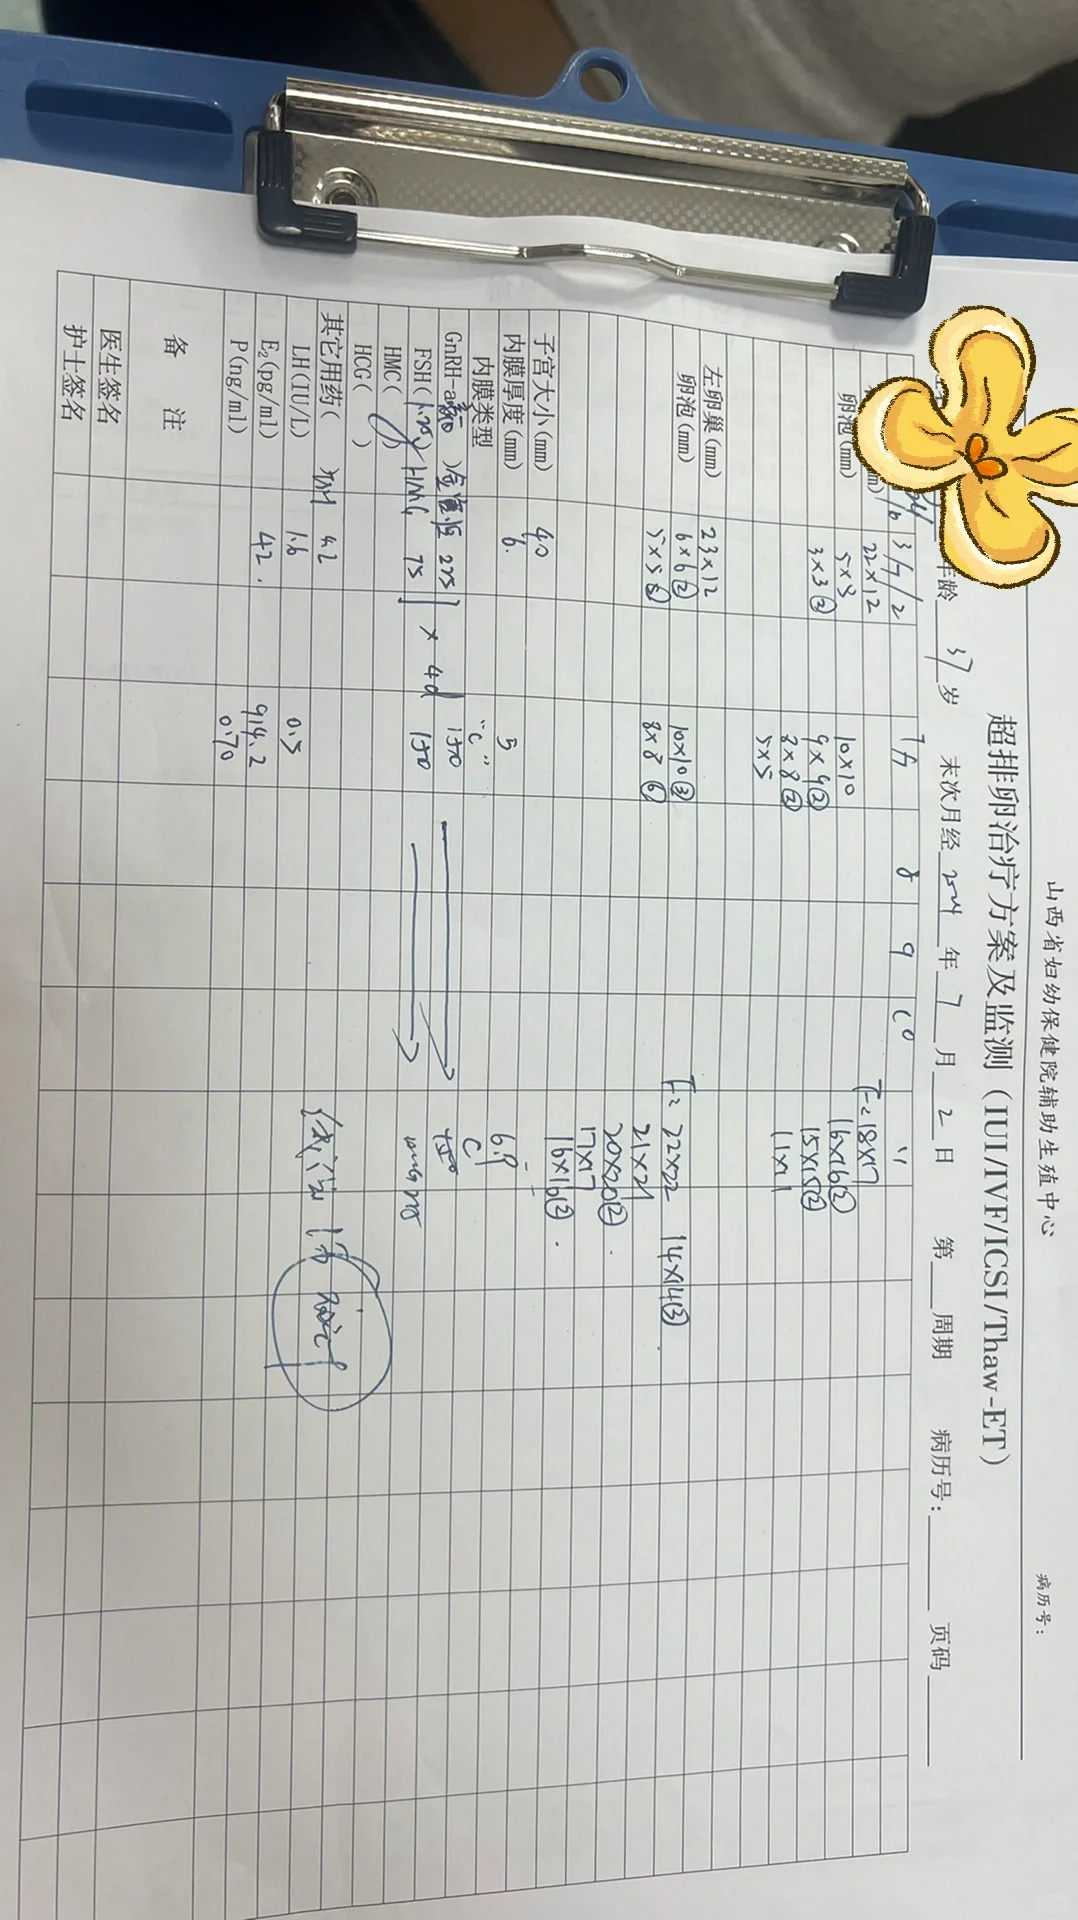 山西省妇幼保健院辅助生殖中心
病历号：
超排卵治疗方案及监测（IUI/IVF/ICSI/Thaw-ET）
年龄 37 岁 末次月经 2024 年 7 月 2 日 第 周期 病历号： 页码
3/7/2 7/7 8 9 10 11
22×12
卵泡(mm) 5×3 10×10 16×16② 18×17
3×3② 9×9② 15×15②
8×8② 11×11
5×5
左卵巢(mm) 23×12
卵泡(mm) 6×6② 10×10③ 22×22 14×14③
5×5⑥ 8×8⑥ 21×21
20×20②
17×17
16×16②
子宫大小(mm) 40
内膜厚度(mm) 6. 5 6.9
内膜类型 "C" C
GnRH-a 225 150
FSH( HMG 75 ] × 4d 150
HMC(
HCG( )
其它用药( 4.2
LH(IU/L) 1.6 0.5
E₂(pg/ml) 42. 914.2
P(ng/ml) 0.70
备 注
医生签名
护士签名